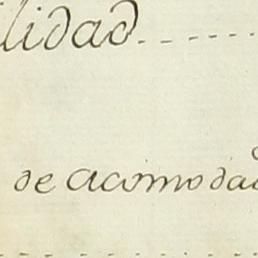 ilidad
de acomoda